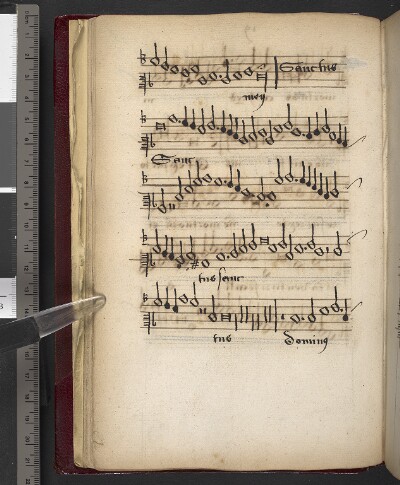 Sanctus
mey
Sanc
tus sanc
tus dominus